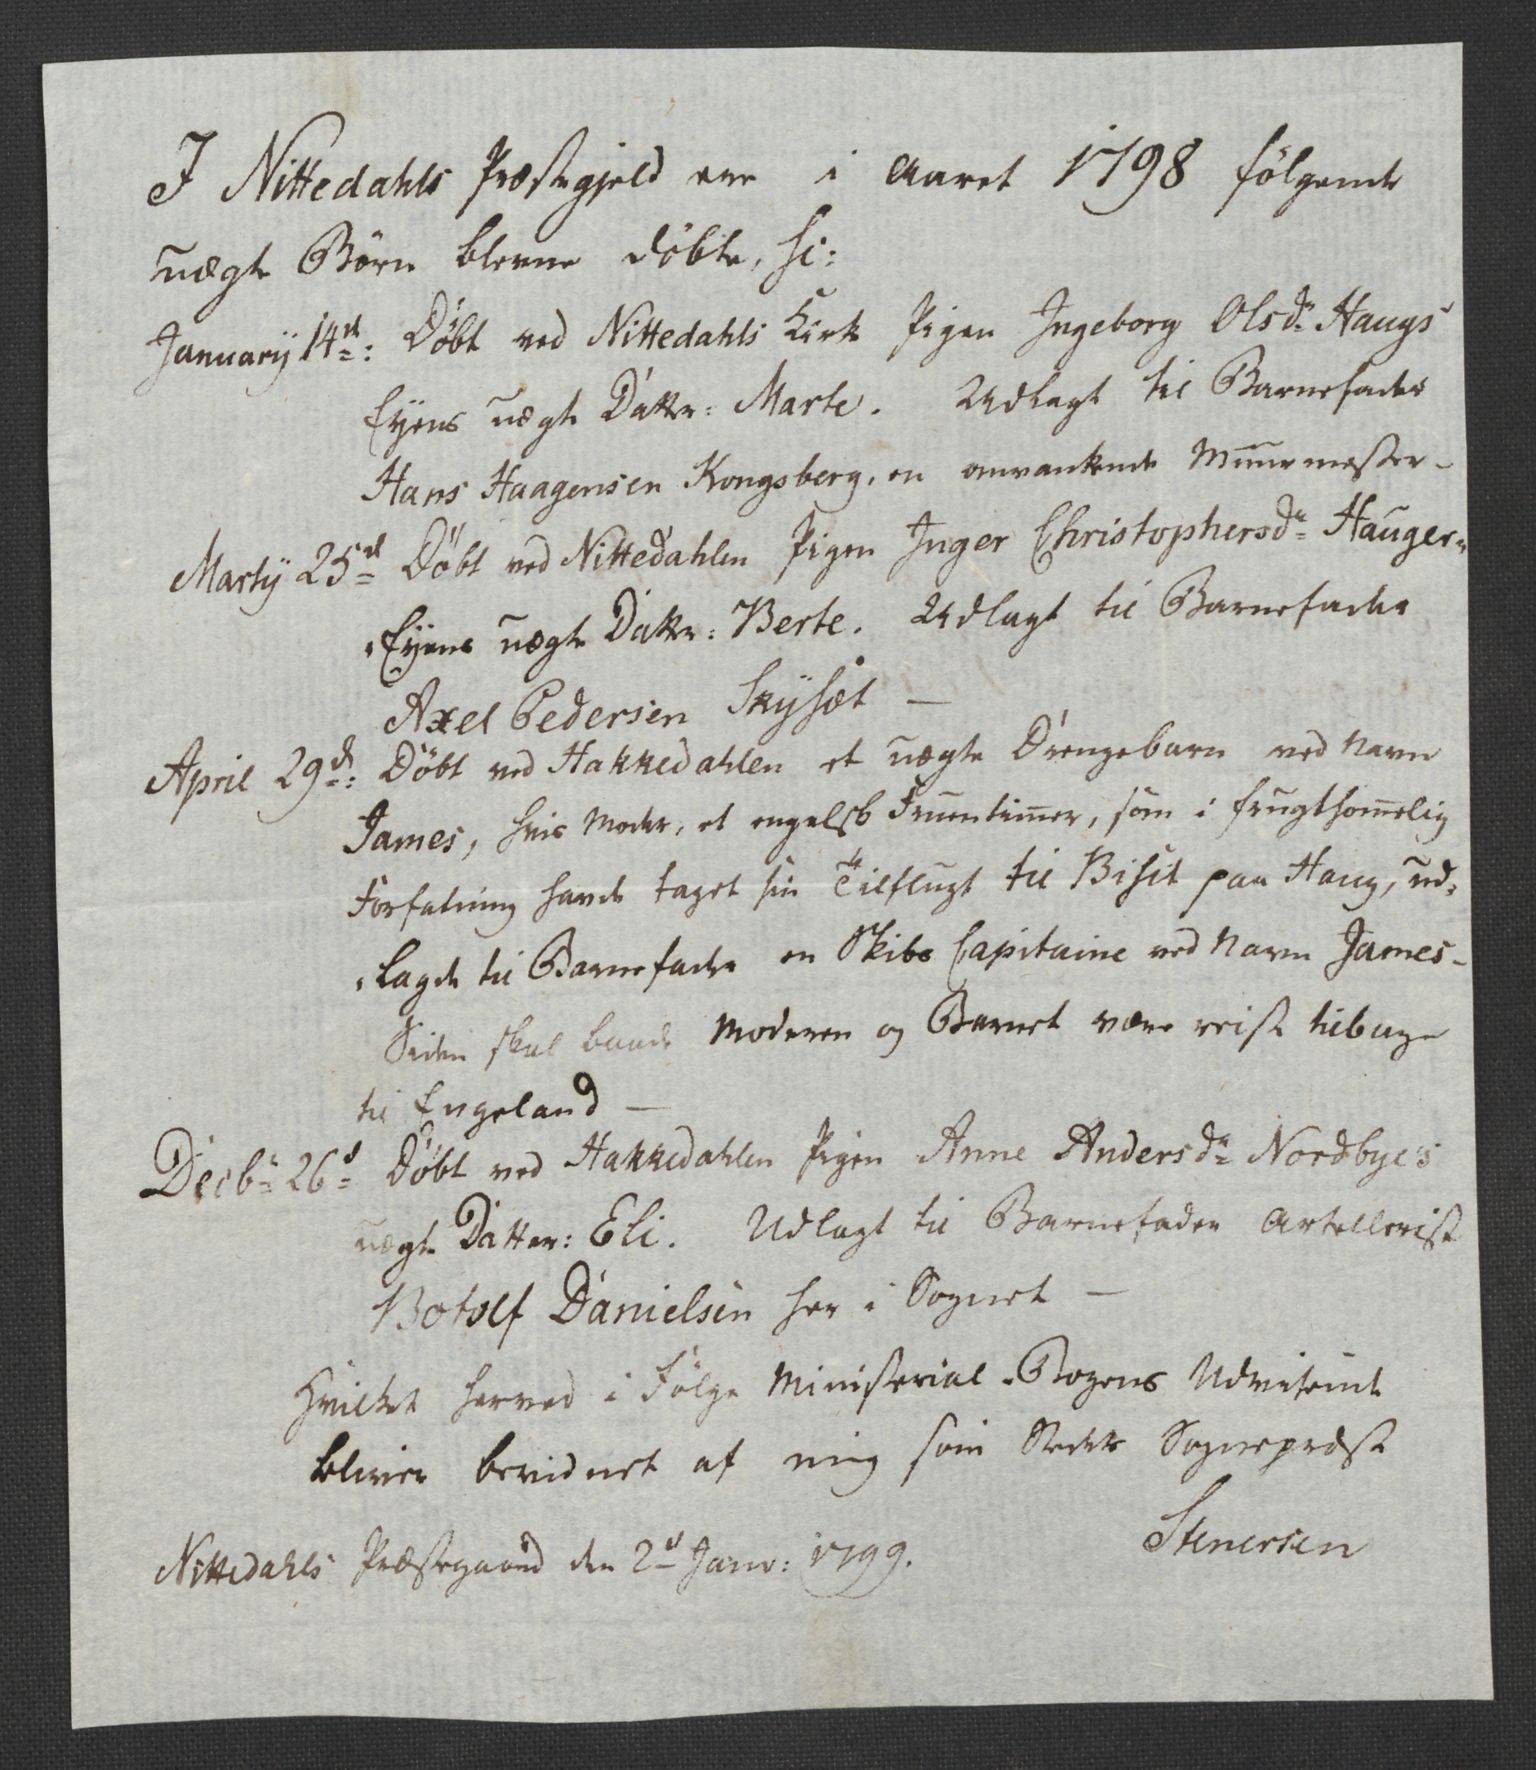 I Nittedahls Præstegjeld ere i Aaret 1798 følgende
uægte Börn blevne döbte, sc:
Januarij 14de: Döbt ved Nittedahls Kirke Pigen Ingeborg Olsdr Haugs
Eyens uægte Datter: Marte. Udlagt til Barnefader
Hans Haagensen Kongsberg, en omvankende Muurmester-
Martij 25de Döbt ved Nittedahlen Pigen Inger Christophersdr Hauger-
Eyens uægte Datter: Berte. Udlagt til Barnefader
Axel Pedersen Skÿset —
April 29de: Döbt ved Hakkedahlen et uægte Drengebarn ved Navn
James, hvis Moder, et engelsk Fruentimer, som i frugtsomelig
Forfatning havde taget sin Tilflugt til Visit paa Haug, ud-
lagde til Barnefader en Skibs Capitaine ved Navn James-
Siden skal baade Moderen og Barnet være reist tilbage
til Engeland —
Decbr 26de Döbt ved Hakkedahlen Pigen Anne Andersdr Nordbye's
uægte Datter: Eli. Udlagt til Barnefader Artellerist
Botolf Danielsen her i Sognet —
Hvilket herved i Følge Ministerial-Bogens Udvisende
bliver bevidnet af mig som Stedets Sognepræst
Stenersen
Nittedahls Præstegaard den 2de Janr: 1799.